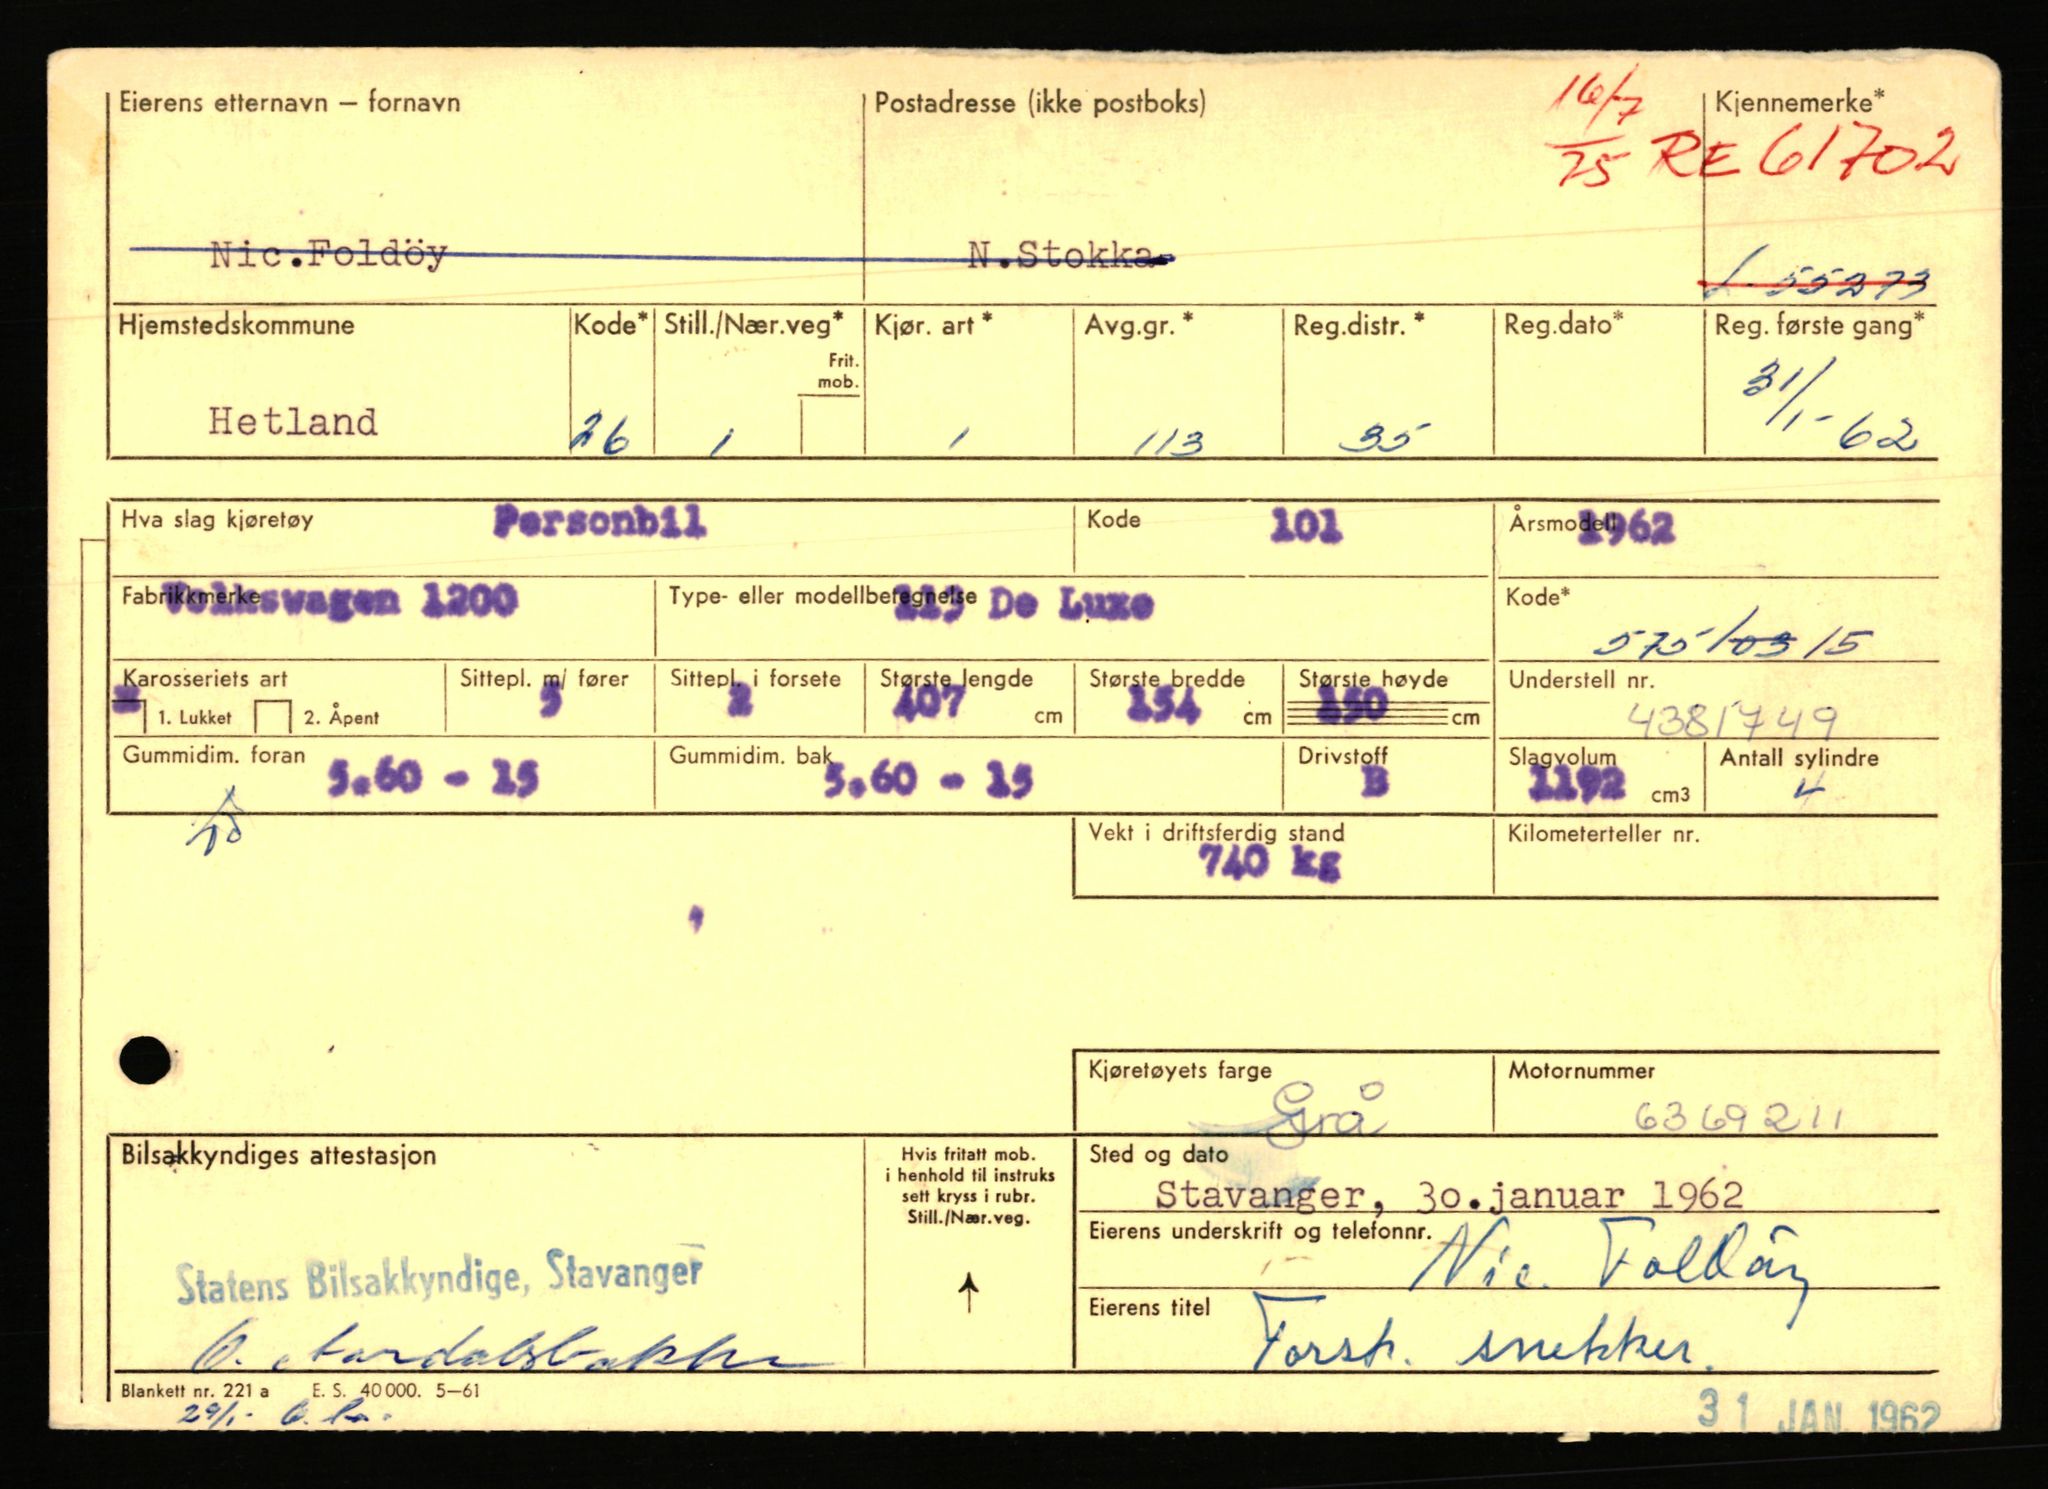 Eierens etternavn – fornavn
Postadresse (ikke postboks)
16/7
75
Kjennemerke*
RE 61702
Nic.Foldöy
N.Stokka
L-55273
Hjemstedskommune
Kode*
Still./Nær.veg*
Frit.
mob.
Kjør. art *
Avg.gr. *
Reg.distr. *
Reg.dato*
Reg. første gang*
Hetland
26
1
1
113
35
31/1-62
Hva slag kjøretøy
Personbil
Kode
101
Årsmodell
1962
Fabrikkmerke
Volkswagen 1200
Type- eller modellbetegnelse
113 De Luxe
Kode*
575/03 15
Karosseriets art
1. Lukket
2. Åpent
Sittepl. m/ fører
5
Sittepl. i forsete
2
Største lengde
407 cm
Største bredde
154 cm
Største høyde
150 cm
Understell nr.
4381749
Gummidim. foran
5.60 - 15
Gummidim. bak
5.60 - 15
Drivstoff
B
Slagvolum
1192 cm3
Antall sylindre
4
Vekt i driftsferdig stand
740 kg
Kilometerteller nr.
Kjøretøyets farge
Grå
Motornummer
6369211
Bilsakkyndiges attestasjon
Hvis fritatt mob.
i henhold til instruks
sett kryss i rubr.
Still./Nær.veg.
Sted og dato
Stavanger, 30.januar 1962
Eierens underskrift og telefonnr.
Nic. Foldöy
Statens Bilsakkyndige, Stavanger
Eierens titel
Forsk. snekker.
Blankett nr. 221 a E. S. 40 000. 5–61
29/1-
31 JAN. 1962